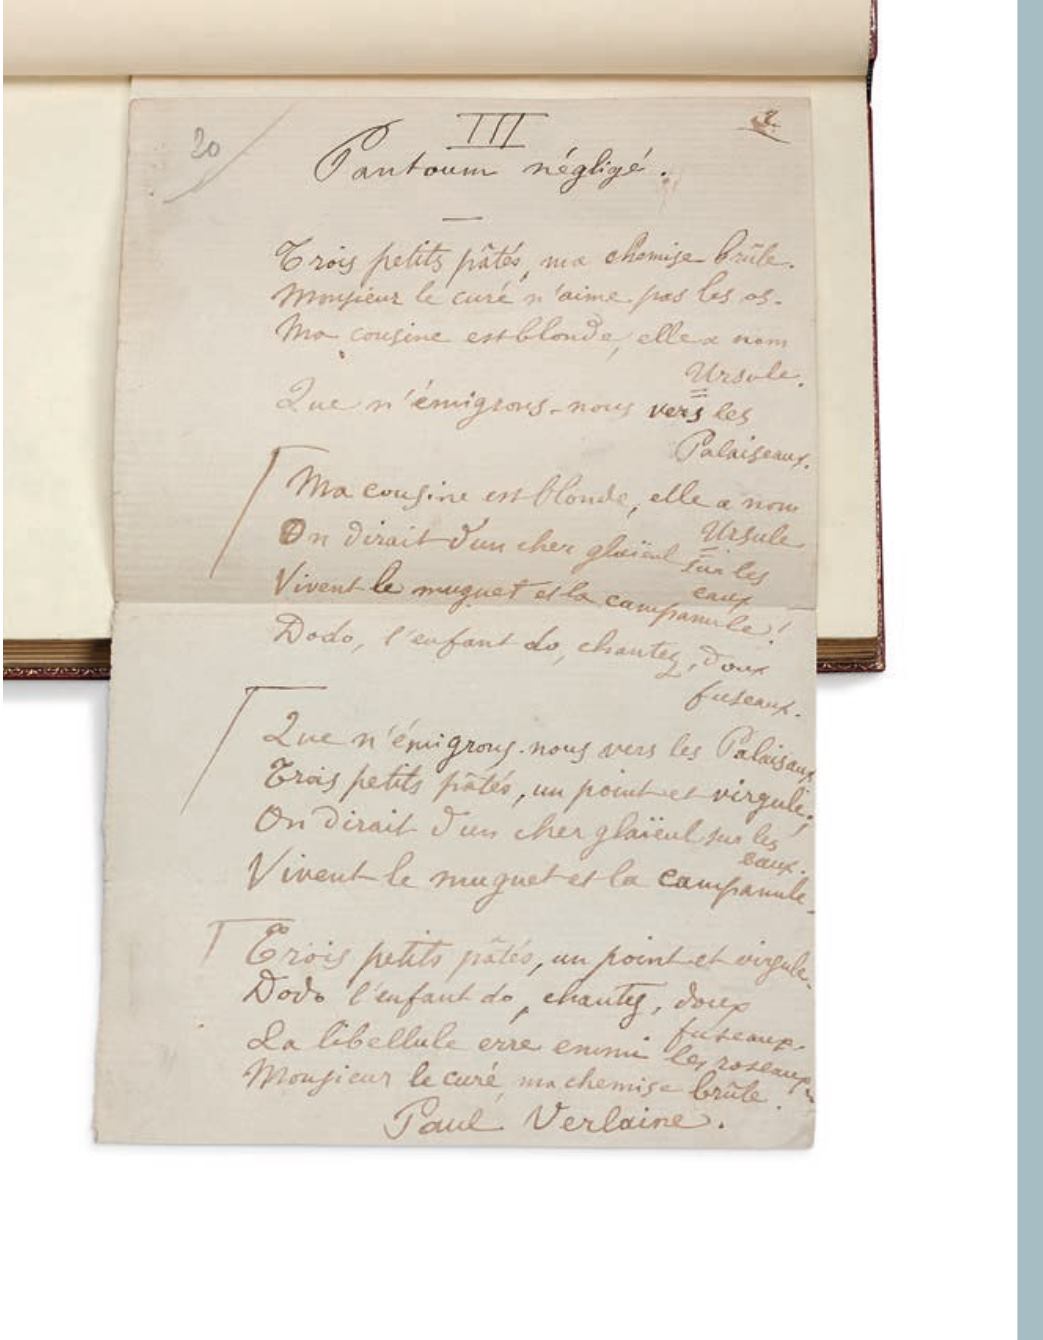 20
III
2.
Pantoum négligé.
Trois petits pâtés, ma chemise brûle.
Monsieur le curé n'aime pas les os.
Ma cousine est blonde, elle a nom
Ursule.
Que n'émigrons-nous vers les
Palaiseaux.
Ma cousine est blonde, elle a nom
Ursule
On dirait d'un cher glaïeul sur les
eaux
Vivent le muguet et la campanule!
Dodo, l'enfant do, chantez, doux
fuseaux.
Que n'émigrons-nous vers les Palaiseaux
Trois petits pâtés, un point et virgule;
On dirait d'un cher glaïeul sur les
eaux.
Vivent le muguet et la campanule.
Trois petits pâtés, un point et virgule.
Dodo l'enfant do, chantez, doux
fuseaux.
La libellule erre emmi les roseaux.
Monsieur le curé, ma chemise brûle.
Paul Verlaine.